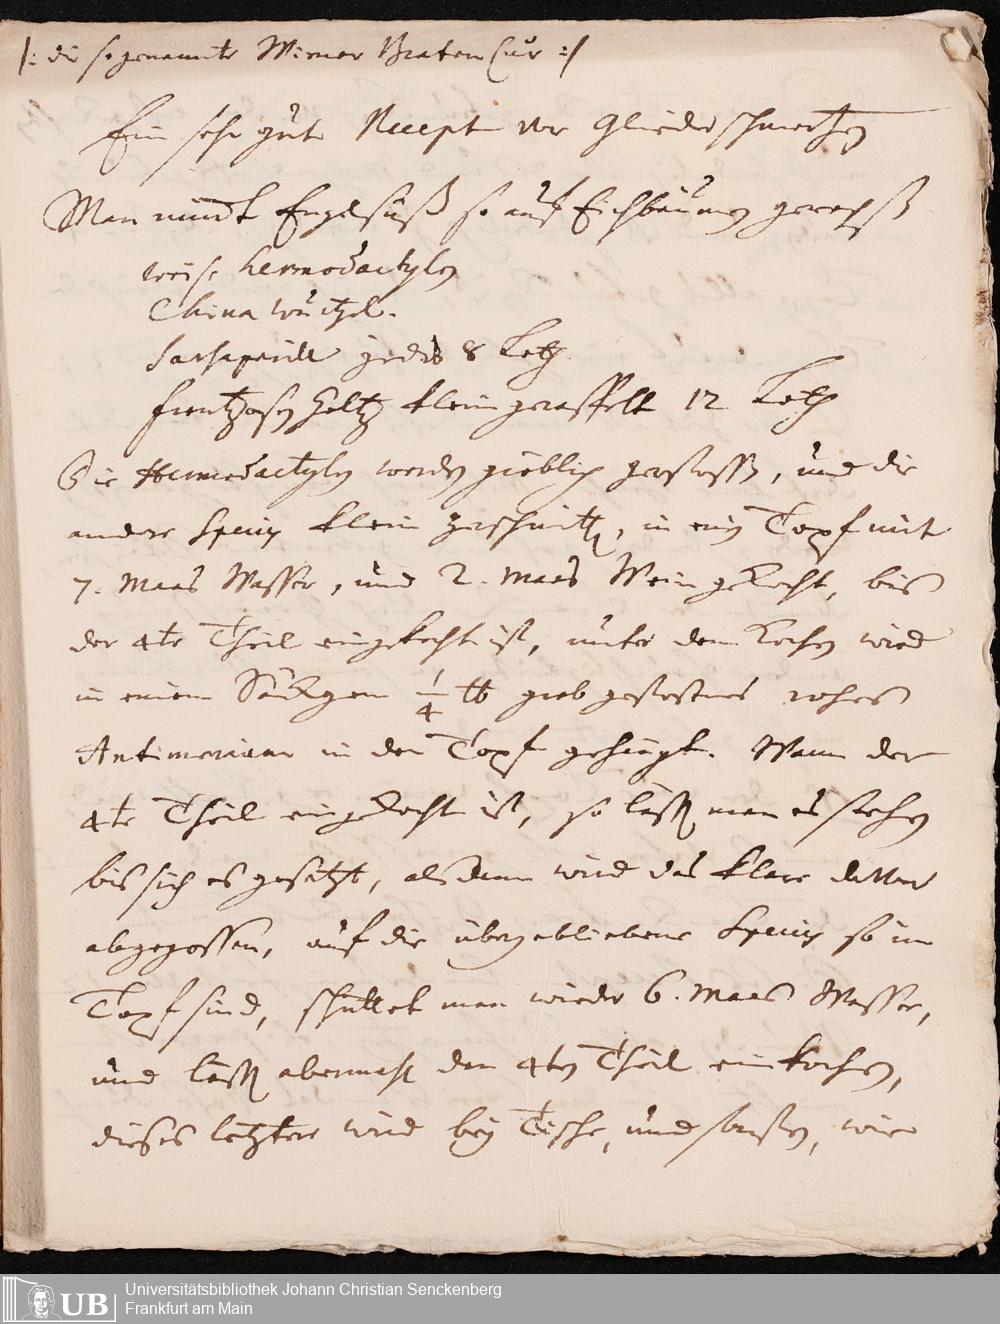 /: die sogenannte Wiener Braten Cur :/
Ein sehr gute Recept vor Gliederschmertzen
Man nimbt Engelsüß so auf Eichbäumen gewachsst
weise Hermodactylen
China Würtzel.
Sarsaparill jedes 8 Loth
frantzosen Holtz klein geraspelt 12 Loth
Die Hermodactylen werden gröblich gestossen, und die
andere Specien klein zerschnitten, in ein Topf mit
7. Maas Wasser, und 2. Maas Wein gekocht, bis
der 4te Theil eingekocht ist, unter dem Kochen wird
in einem Säckgen 1/4 ℔ grob gestosenes rohes
Antimonium in den Topf gehängt. Wann der
4te Theil eingekocht ist, so lässt man es stehen
bis sich es gesetzt, alsdann wird das klare davon
abgegossen, auf die übergebliebene Specien so im
Topf sind, schüttet man wieder 6. Maas Wasser,
und lässt abermahl den 4ten Theil einkochen,
dieses letztere wird bey Tische, und sonsten, wie
Universitätsbibliothek Johann Christian Senckenberg
Frankfurt am Main
UB